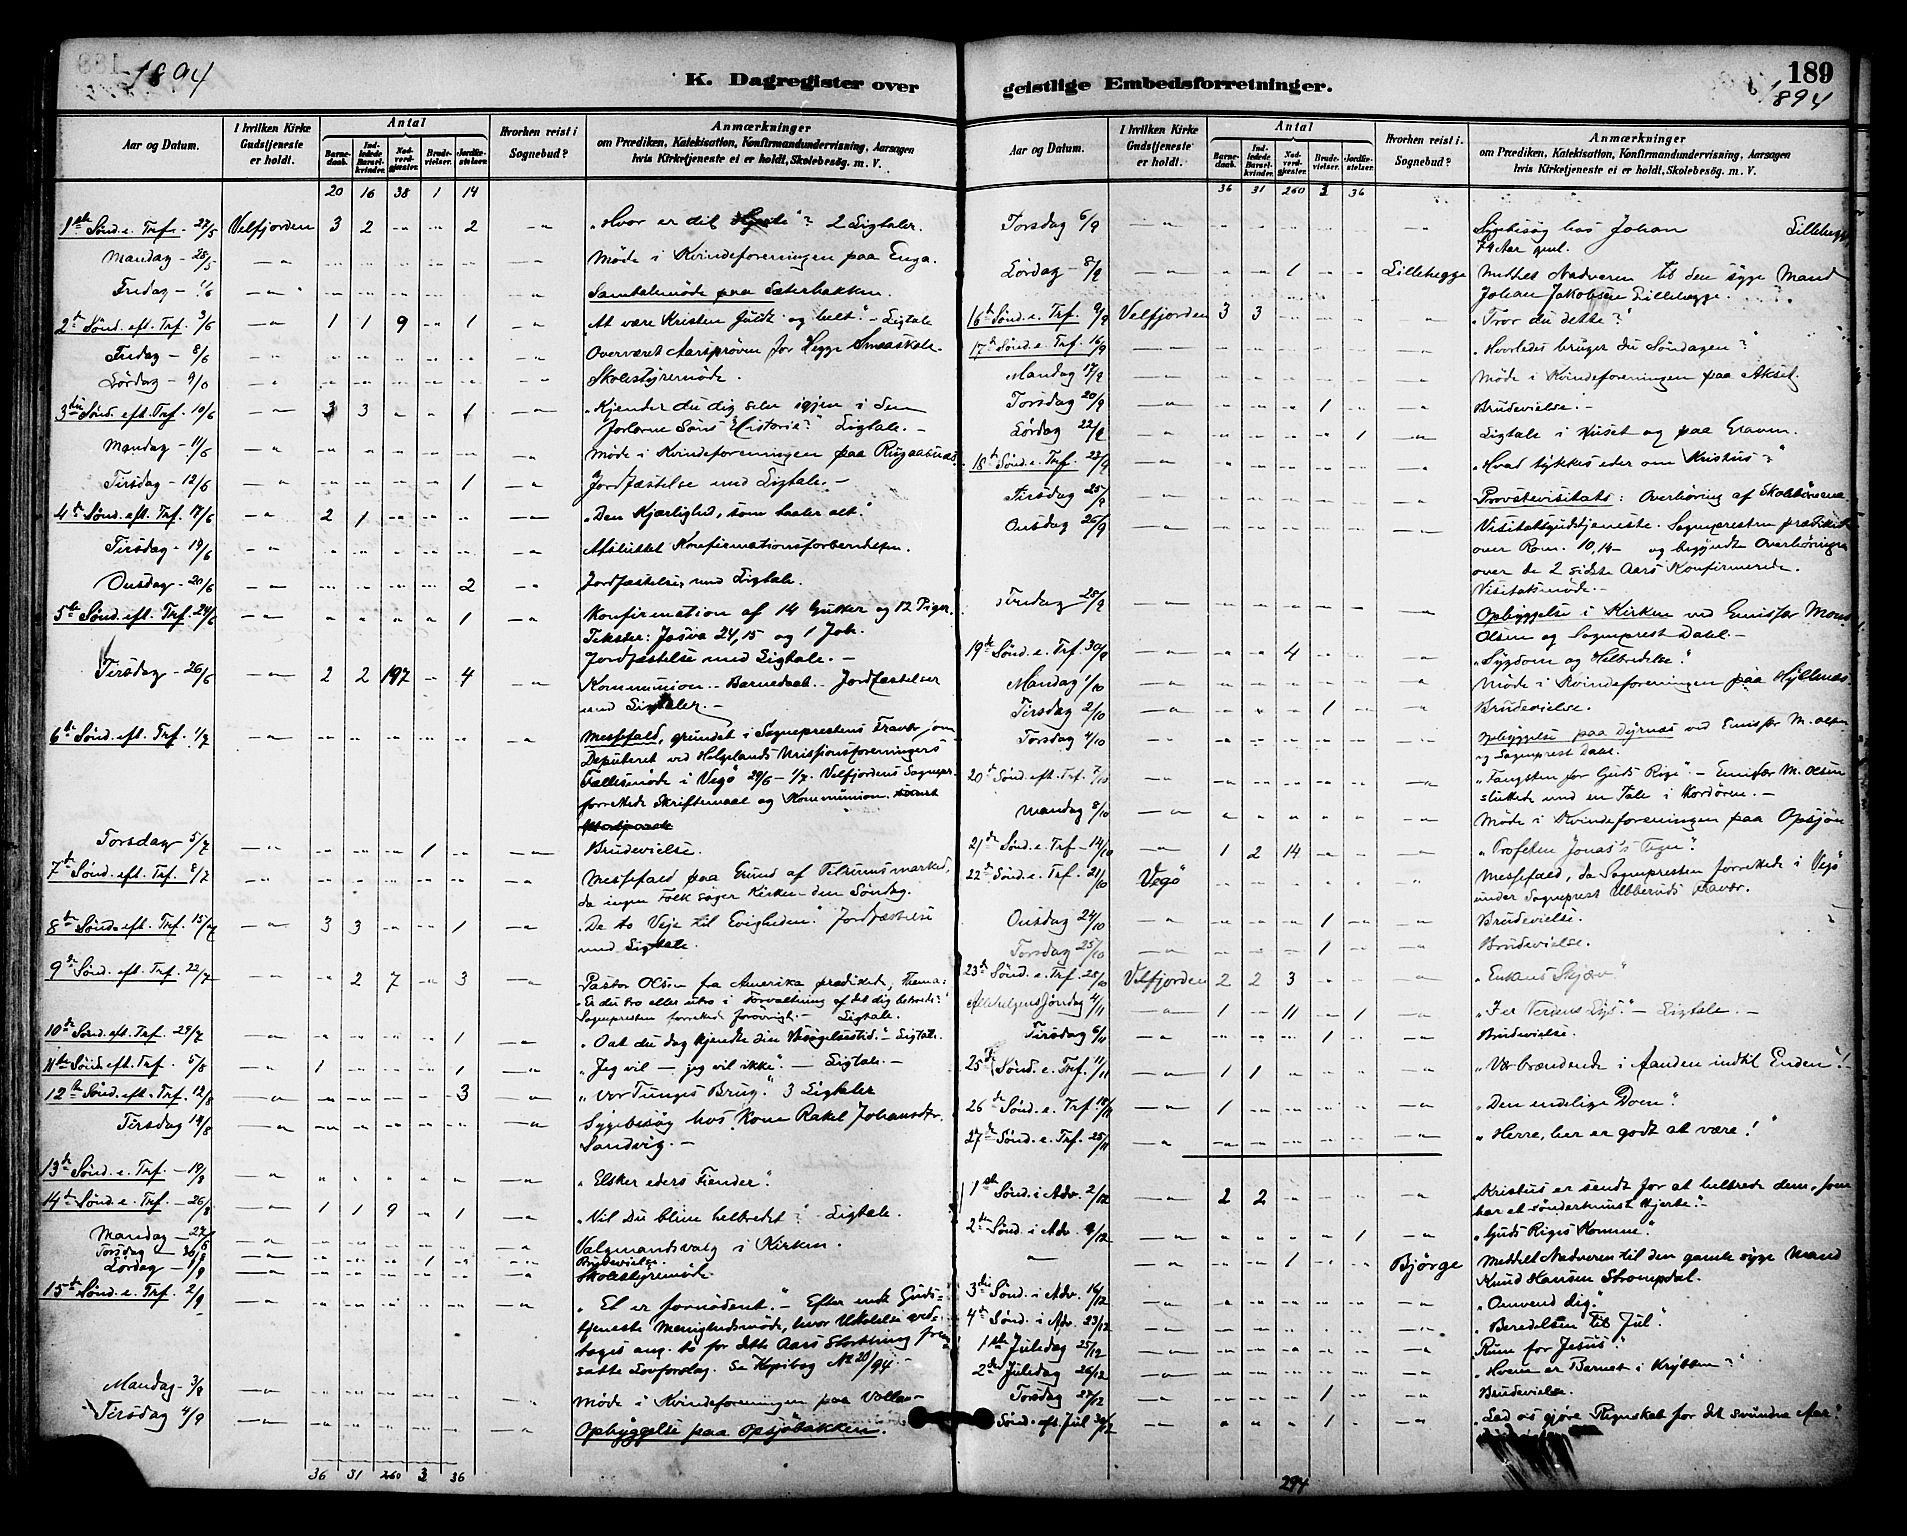 1894
K. Dagregister over
Aar og Datum.
I hvilken Kirke Gudstjeneste er holdt.
Antal
Barnedaab.
Indledede Barselkvinder.
Nadverdgjester.
Brudevielser.
Jordfæstelser.
Hvorhen reist i Sognebud?
Anmærkninger
om Prædiken, Katekisation, Konfirmandundervisning, Aarsagen
hvis Kirketjeneste ei er holdt, Skolebesøg. m. V.
20 16 38 1 14
1ste Sønd. e. Trf. 27/5 Velfjorden 3 2 2 „Hvor er dit Hjerte“? 2 Ligtaler.
Mandag 28/5 Møde i Kvindeforeningen paa Enga.
Fredag 1/6 Samtalemøde paa Sæterbakken.
2de Sønd. eft. Trf. 3/6 1 1 9 1 „At være Kristen fuldt og helt“ – Ligtale
Fredag 8/6 Overværet Aarsprøven for Hegge Smaaskole.
Lördag 9/6 Skolestyremöde.
3die Sønd. eft. Trf. 10/6 3 3 1 „Kjender du dig selv igjen i den
forlorne Søns Historie?“ Ligtale. –
Mandag 11/6 Møde i Kvindeforeningen paa
Tirsdag 12/6 1 Jordfæstelse med Ligtale. –
4de Sønd. eft. Trf. 17/6 2 1 „Den Kjærlighed, som taaler alt.“
Tirsdag 19/6 Afsluttet Konfirmationsforberedelsen.
Onsdag 20/6 2 Jordfæstelser med Ligtale.
5te Sønd. eft. Trf. 24/6 1 Konfirmation af 14 Gutter og 12 Piger.
Tekster: Josva 24,15 og 1 Joh.
Jordfæstelse med Ligtale. –
Tirsdag 26/6 2 2 197 4 Kommunion – Barnedaab – Jordfæstelser
med Ligtaler. –
6te Sønd. eft. Trf. 1/7 Messefald, grundet i Sogneprestens Fravær som
Deputeret ved Helgelands Missionsforeningers
Fællesmøde i Vegö 29/6 – 1/7. Velfjordens Sognepr.
forrettede Skriftemaal og Kommunion
Torsdag 5/7 1 Brudevielse.
7de Sønd. eft. Trf. 8/7 Messefald paa Grund af Tilrumsmarked,
da ingen Folk søger Kirken den Søndag.
8de Sønd. eft. Trf. 15/7 3 3 1 „De to Veje til Evigheden.“ Jordfæstelse
med Ligtale.
9de Sønd. eft. Trf. 22/7 2 7 3 Pastor Olsen fra Amerika prædiket, Thema:
„Er du tro eller utro i Forvaltning af det dig betroede?“
Sognepresten forrettede forøvrigt. – Ligtale.
10de Sønd. eft. Trf. 29/7 1 „O at du dog kjendte din Besøgelsestid.“ – Ligtale.
11te Sønd. eft. Trf. 5/8 1 1 „Jeg vil – jeg vil ikke“. – Ligtale. –
12te Sønd. eft. Trf. 12/8 3 „Vor Tunges Brug.“ 3 Ligtaler
Tirsdag 14/8 Sygebesøg hos Kone Rakel Johansdtr.
Sandvig. –
13de Sønd. e. Trf. 19/8 „Elsker eders Fiender.“
14de Sønd. e. Trf. 26/8 1 1 9 1 „Vil Du blive helbredet“? Ligtale.
Mandag 27/8 Valgmandsvalg i Kirken.
Torsdag 30/8 1 Brudevielse.
Lördag 1/9 Skolestyremöde.
15de Sønd. e. Trf. 2/9 „Et er fornödent“. – Efter endt Guds-
tjeneste Menighedsmöde, hvor Uttalelse ved-
toges ang. to for dette Aars Storthing frem
satte Lovforslag. Se Kopibog No 20/94. –
Mandag 3/9 Møde i Kvindeforeningen paa
Tirsdag 4/9 Opbyggelse paa Opsjöbakken.
36 31 260 3 36
geistlige Embedsforretninger.
189
1894
Aar og Datum.
I hvilken Kirke Gudstjeneste er holdt.
Antal
Barnedaab.
Indledede Barselkvinder.
Nadverdgjester.
Brudevielser.
Jordfæstelser.
Hvorhen reist i Sognebud?
Anmærkninger
om Prædiken, Katekisation, Konfirmandundervisning, Aarsagen
hvis Kirketjeneste ei er holdt, Skolebesøg. m. V.
36 31 260 3 36
Torsdag 6/9 Sygebesøg hos Johan Lillehegge
74 Aar gml.
Lördag 8/9 1 Lillehegge Meddelt Nadveren til den syge Mand
Johan Jakobsen Lillehegge.
16de Sønd. e. Trf. 9/9 Velfjorden 3 3 „Tror du dette?“
17de Sønd. e. Trf. 16/9 „Hvorledes bruger du Søndagen“?
Mandag 17/9 Møde i Kvindeforeningen paa Aksel.
Torsdag 20/9 1 Brudevielse. –
Lördag 22/9 1 Ligtale i Huset og paa Graven.
18de Sønd. e. Trf. 23/9 „Hvad tykkes eder om Kristus“?
Tirsdag 25/9 Provstevisitats: Overhøring af Skolebørnene.
Onsdag 26/9 Visitatsgudstjeneste. Sognepresten prædiket
over Rom. 10,14– og begyndte Overhøringen
over de 2 sidste Aars Konfirmerede.
Visitatsmøde.
Fredag 28/9 Opbyggelse i Kirken ved Emissær Mons
Olsen og Sogneprest Dahl. –
19de Sønd. e. Trf. 30/9 4 „Sygdom og Helbredelse.“
Mandag 1/10 Møde i Kvindeforeningen paa Hyllenæs.
Tirsdag 2/10 1 Brudevielse.
Torsdag 4/10 Opbyggelse paa ved Emissær M. Olsen
og Sogneprest Dahl.
20de Sønd. eft. Trf. 7/10 „Fangsten for Guds Rige“. – Emissær M. Olsen
sluttede med en Tale i Kordøren. –
Mandag 8/10 Møde i Kvindeforeningen paa Opsjön
21de Sønd. e. Trf. 14/10 1 2 14 „Profeten Jonas's Tegn“.
22de Sønd. e. Trf. 21/10 Vegö Messefald, da Sognepresten forrettede i Vegö
under Sogneprest Fravær.
Onsdag 24/10 1 Brudevielse.
Torsdag 25/10 1 Brudevielse.
23de Sønd. e. Trf. 28/10 Velfjorden 2 2 3 „Enkens Skjærv“
Allehelgens Søndag 4/11 1 11 1 „I er Verdens Lys.“ – Ligtale. –
Tirsdag 6/11 1 Brudevielse.
25de Sønd. e. Trf. 11/11 1 1 „Vær brændende i Aanden indtil Enden“!
26de Sønd. e. Trf. 18/11 1 „Den endelige Dom“.
27de Sønd. e. Trf. 25/11 „Herre, her er godt at være!“
1ste Sønd. i Adv. 2/12 2 2 Kristus er sendt for at helbrede dem, som
har et sönderknust Hjerte. –
2den Sønd. i Adv. 9/12 1 „Guds Riges Komme“.
1 Bjørge Meddelt Nadveren til den gamle syge Mand
Knud Hansen Strompdal.
3die Sønd. i Adv. 16/12 „Omvend dig.“
4de Sønd. i Adv. 23/12 „Beredelsen til Jul.“
1ste Juledag 25/12 Rum for Jesus“
2den Juledag 26/12 „Hvem er Barnet i Krybben“?
Torsdag 27/12 1 Brudevielse.
Sønd. eft. Jul 30/12 1 „Lad os gjøre Regnskab for det svundne Aar“
294